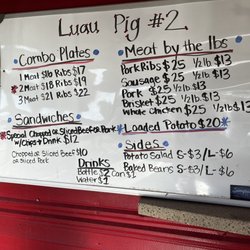 Luau Pig #2
Combo Plates
1 Meat 1/2 lb Ribs $17
*2 Meat 1/2 lb Ribs $19
3 Meat 2 1/2 Ribs $22
Sandwiches
*Special Chopped or Sliced Beef or Pork
w/Chips & Drink $12
Chopped or Sliced Beef $10
or Sliced Pork
Drinks
Bottle $2 Can $1
Water $1
Meat by the lbs
Pork Ribs $25 1/2 lb $13
Sausage $25 1/2 lb $13
Pork $25 1/2 lb $13
Brisket $25 1/2 lb $13
Whole Chicken $25 1/2 $13
*Loaded Potato $20*
Sides
Potato Salad S-$3/L-$6
Baked Beans S-$3/L-$6